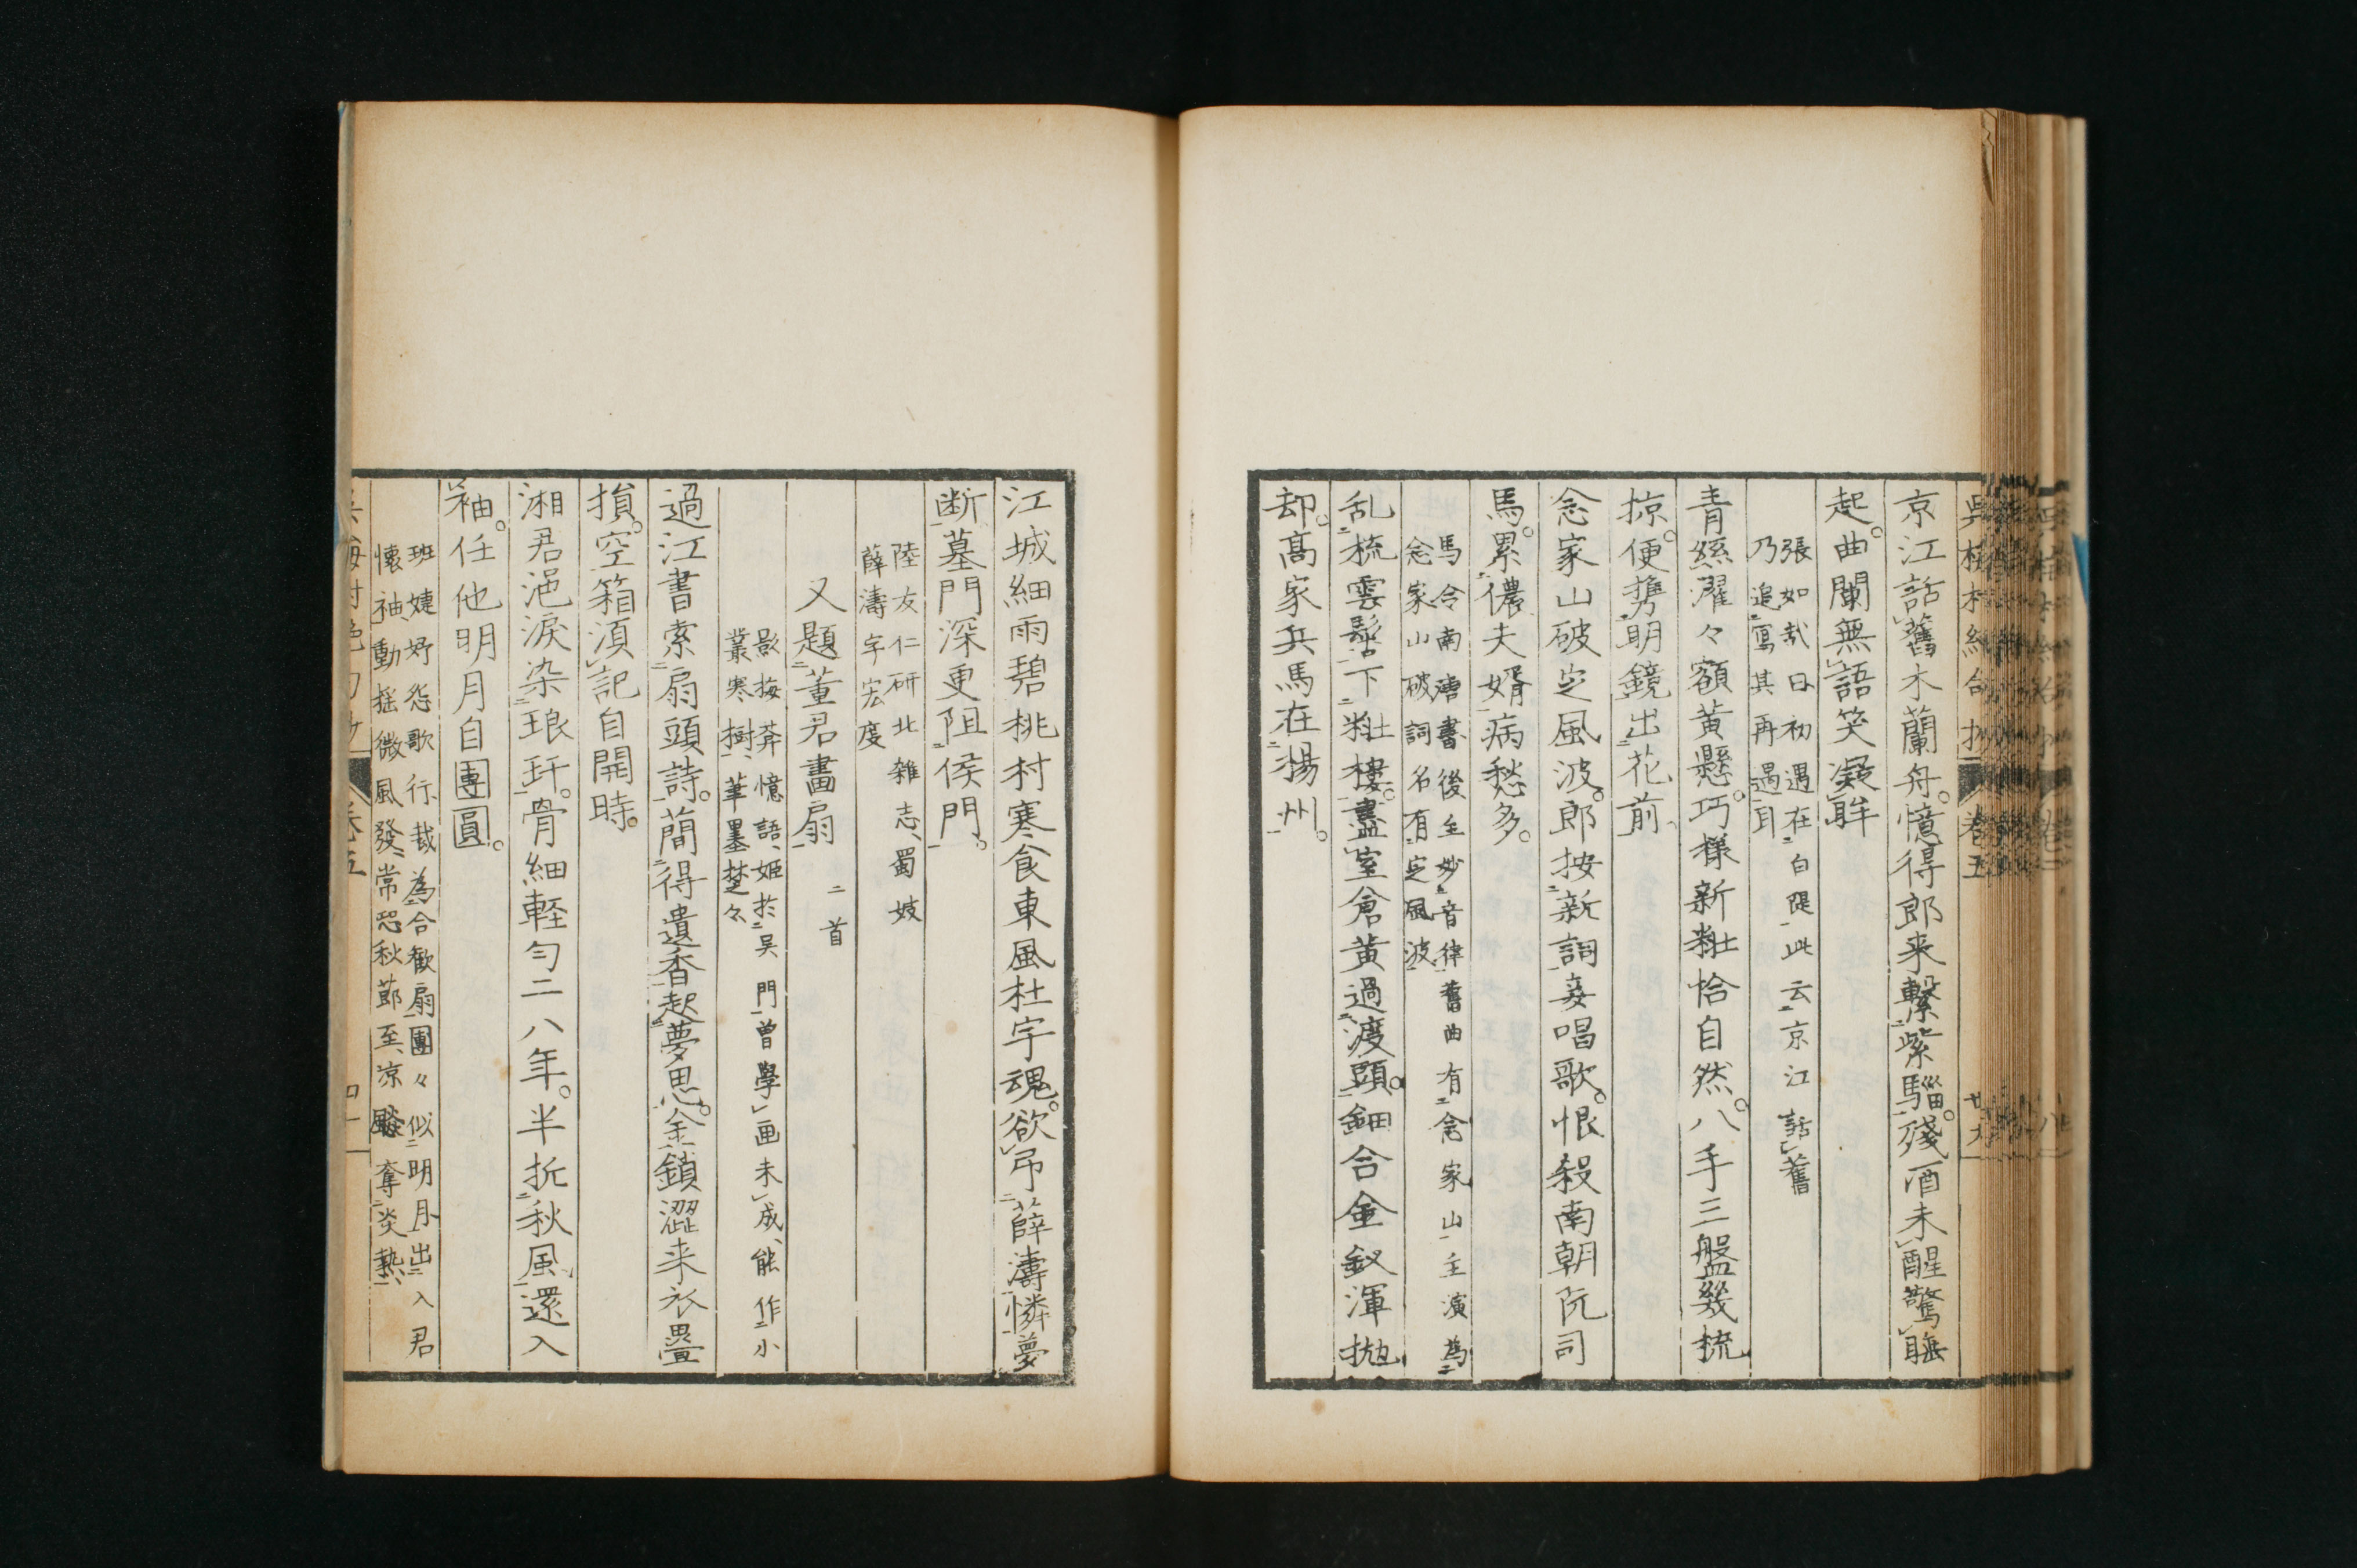 京江話舊木蘭舟。憶得郎来繫紫騮。殘酒未醒驚睡
起。曲闌無語笑凝眸
張如哉曰初遇在白隄此云京江話舊
乃追寫其再遇耳
青絲濯々額黃懸。巧樣新粧恰自然。入手三盤幾梳
掠。便携明鏡出花前
念家山破定風波。郎按新詞妾唱歌。恨殺南朝阮司
馬。累儂夫婿病愁多。
馬令南唐書後主妙音律舊曲有念家山主演為
念家山破詞名有定風波
乱梳雲髻下粧樓。盡室倉黃過渡頭。鈿合金釵渾抛
却。高家兵馬在揚州。
江城細雨碧桃村寒食東風杜宇魂。欲弔薛濤憐夢
断。墓門深更阻侯門。
陸友仁研北雜志、蜀妓
薛濤字宏度
又題董君畫扇 二首
影梅菴憶語、姬於吴門曾學画未成、能作小
叢寒樹、筆墨楚々
過江書索扇頭詩。蕳得遺香起夢思。金鎖澀来衣疊
損。空箱湏記自開時。
湘君浥淚染琅玕。骨細輕勻二八年。半折秋風還入
袖。任他明月自團圓。
班婕妤怨歌行、裁為合歡扇團々似明月出入君
懷袖、動揺微風發、常恐秋節至、凉飈奪炎熱、
卷五